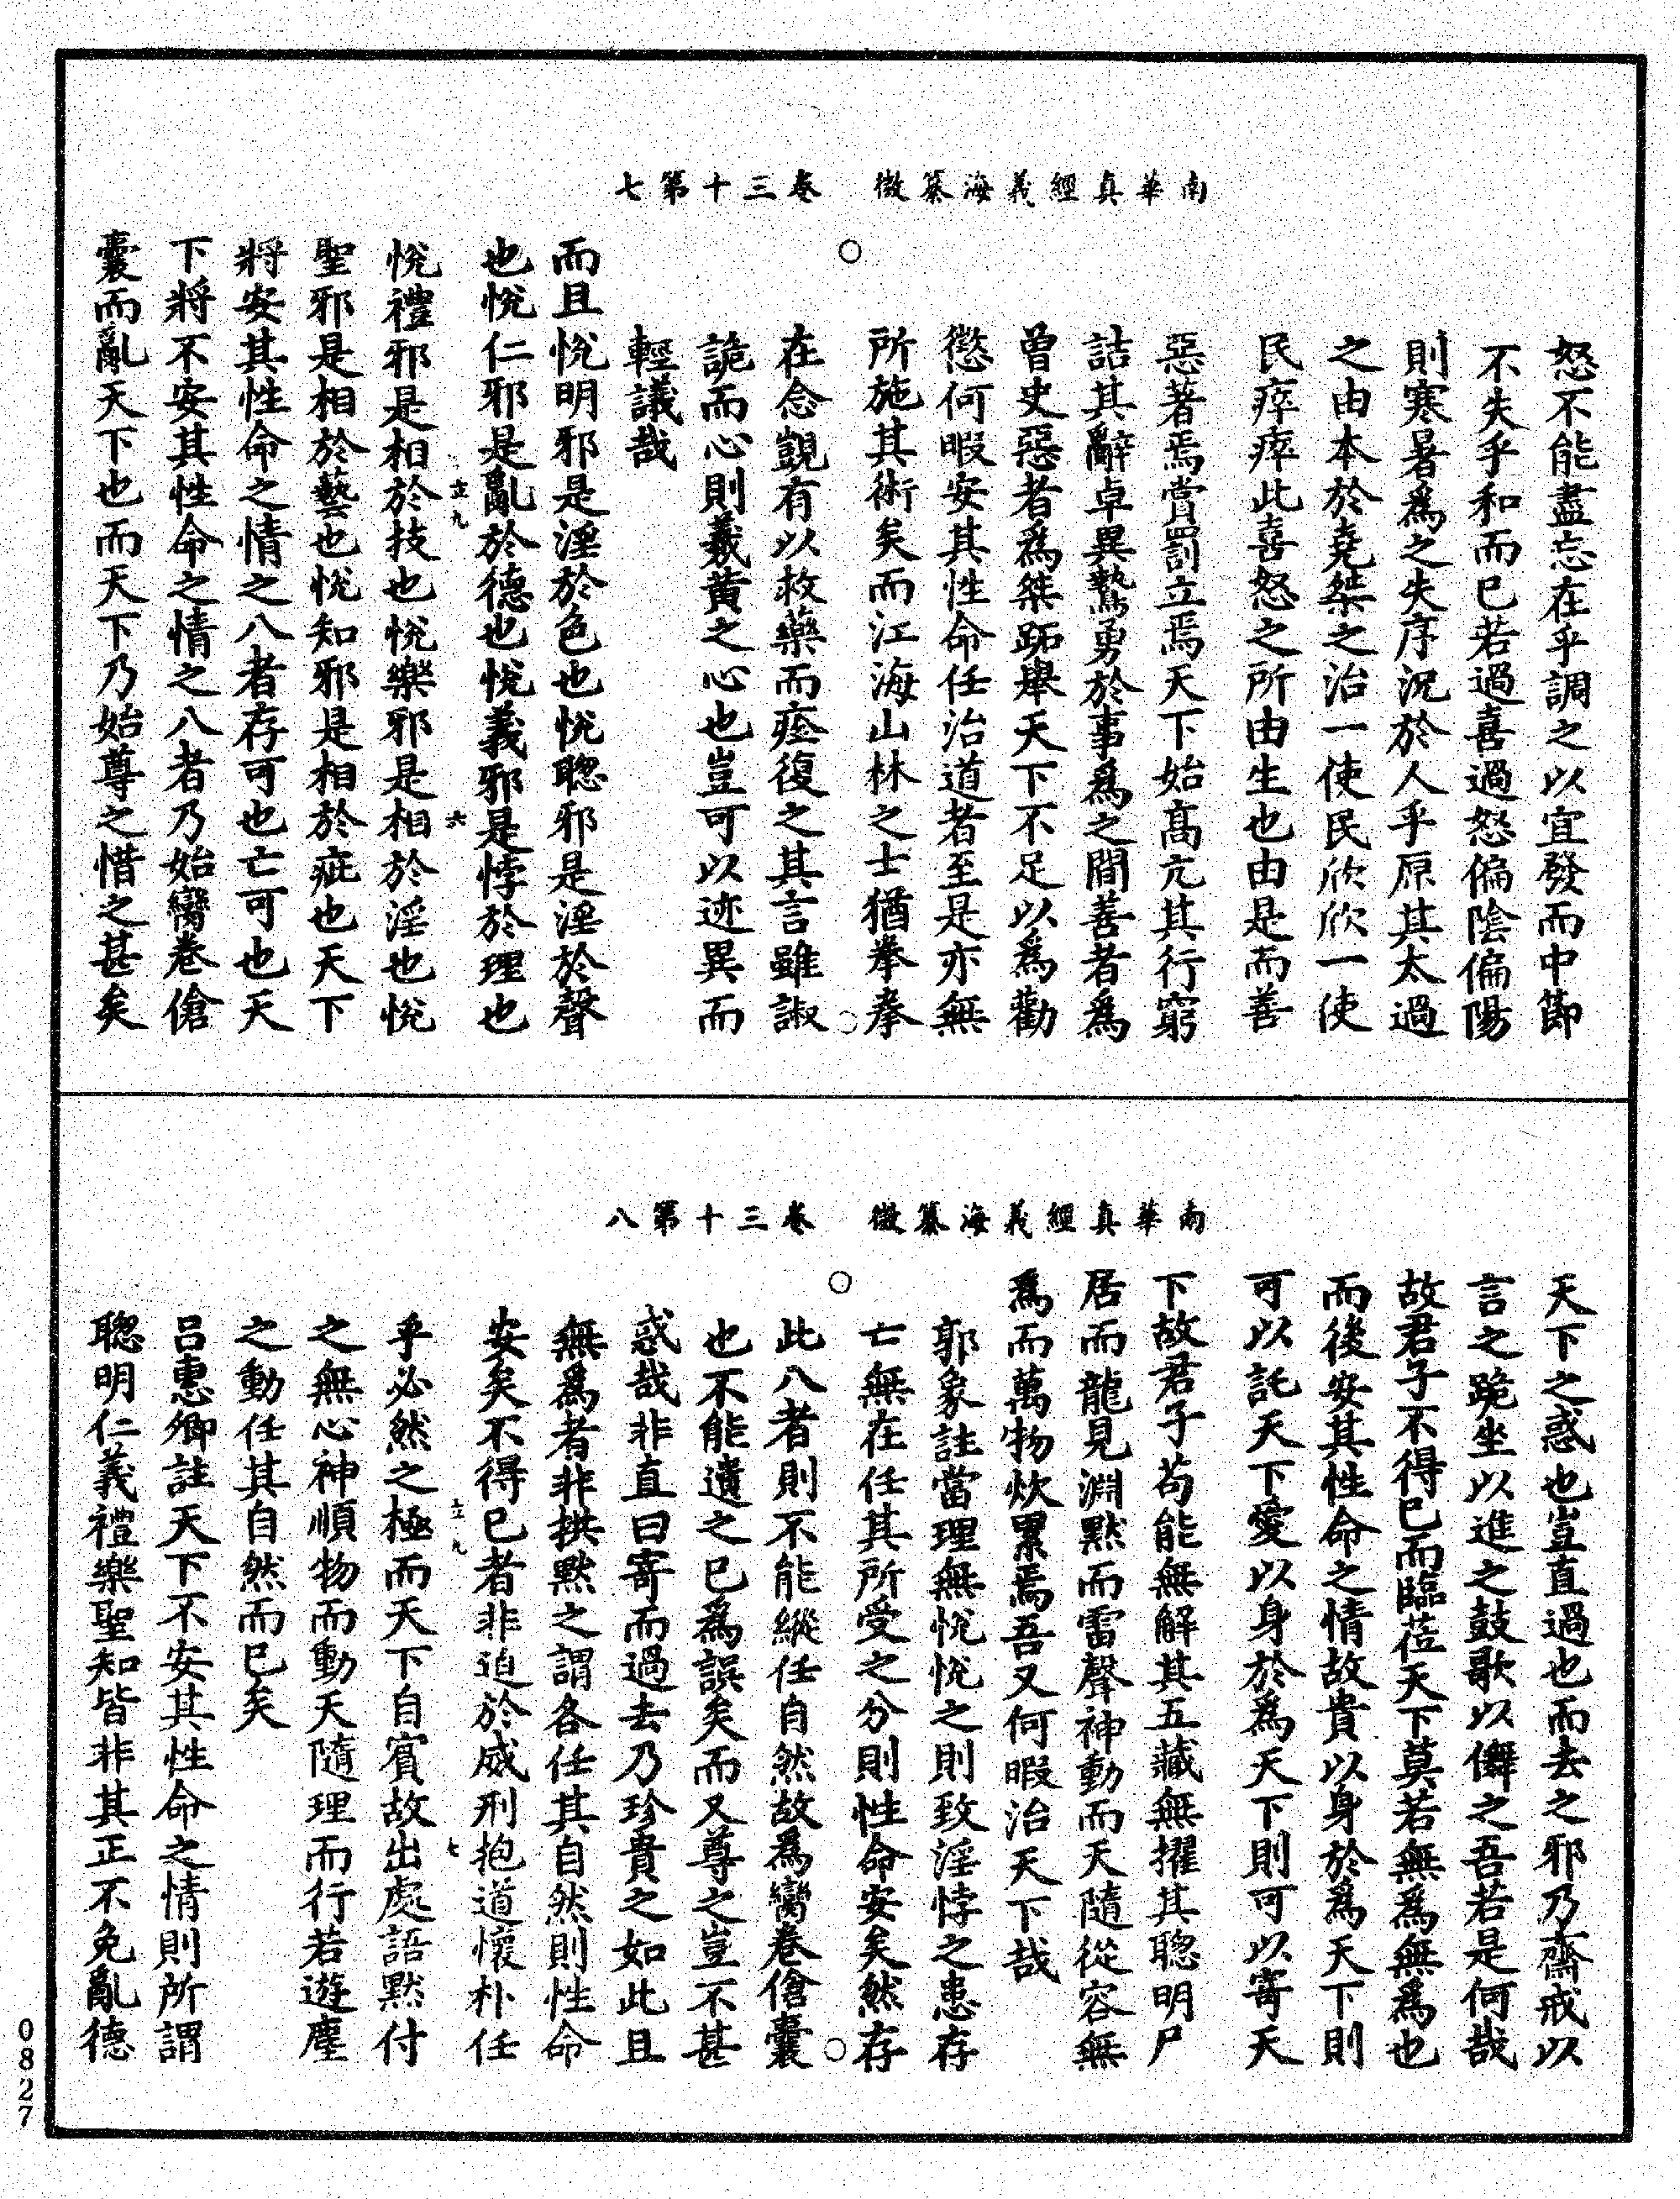 南華真經義海纂微　卷三十第七
怒不能盡忘在乎調之以宜發而中節
不失乎和而已若過喜過怒偏陰偏陽
則寒暑爲之失序況於人乎原其太過
之由本於堯桀之治一使民欣欣一使
民瘁瘁此喜怒之所由生也由是而善
惡著焉賞罰立焉天下始高亢其行窮
詰其辭卓異鷙勇於事爲之間善者爲
曾史惡者爲桀跖舉天下不足以爲勸
懲何暇安其性命任治道者至是亦無
所施其術矣而江海山林之士猶拳拳
在念覬有以救藥而痊復之其言雖諔
詭而心則羲黃之心也豈可以迹異而
輕議哉
而且悅明邪是淫於色也悅聰邪是淫於聲
也悅仁邪是亂於德也悅義邪是悖於理也
立九　六
悅禮邪是相於技也悅樂邪是相於淫也悅
聖邪是相於藝也悅知邪是相於疵也天下
將安其性命之情之八者存可也亡可也天
下將不安其性命之情之八者乃始臠卷傖
囊而亂天下也而天下乃始尊之惜之甚矣
南華真經義海纂微　卷三十第八
天下之惑也豈直過也而去之邪乃齋戒以
言之跪坐以進之鼓歌以儛之吾若是何哉
故君子不得已而臨莅天下莫若無爲無爲也
而後安其性命之情故貴以身於爲天下則
可以託天下愛以身於爲天下則可以寄天
下故君子苟能無解其五藏無擢其聰明尸
居而龍見淵默而雷聲神動而天隨從容無
爲而萬物炊累焉吾又何暇治天下哉
郭象註當理無悅悅之則致淫悖之患存
亡無在任其所受之分則性命安矣然存
此八者則不能縱任自然故爲臠卷傖囊
也不能遺之已爲誤矣而又尊之豈不甚
惑哉非直曰寄而過去乃珍貴之如此且
無爲者非拱默之謂各任其自然則性命
安矣不得已者非迫於威刑抱道懷朴任
立九　七
乎必然之極而天下自賓故出處語默付
之無心神順物而動天隨理而行若遊塵
之動任其自然而已矣
呂惠卿註天下不安其性命之情則所謂
聰明仁義禮樂聖知皆非其正不免亂德
0827